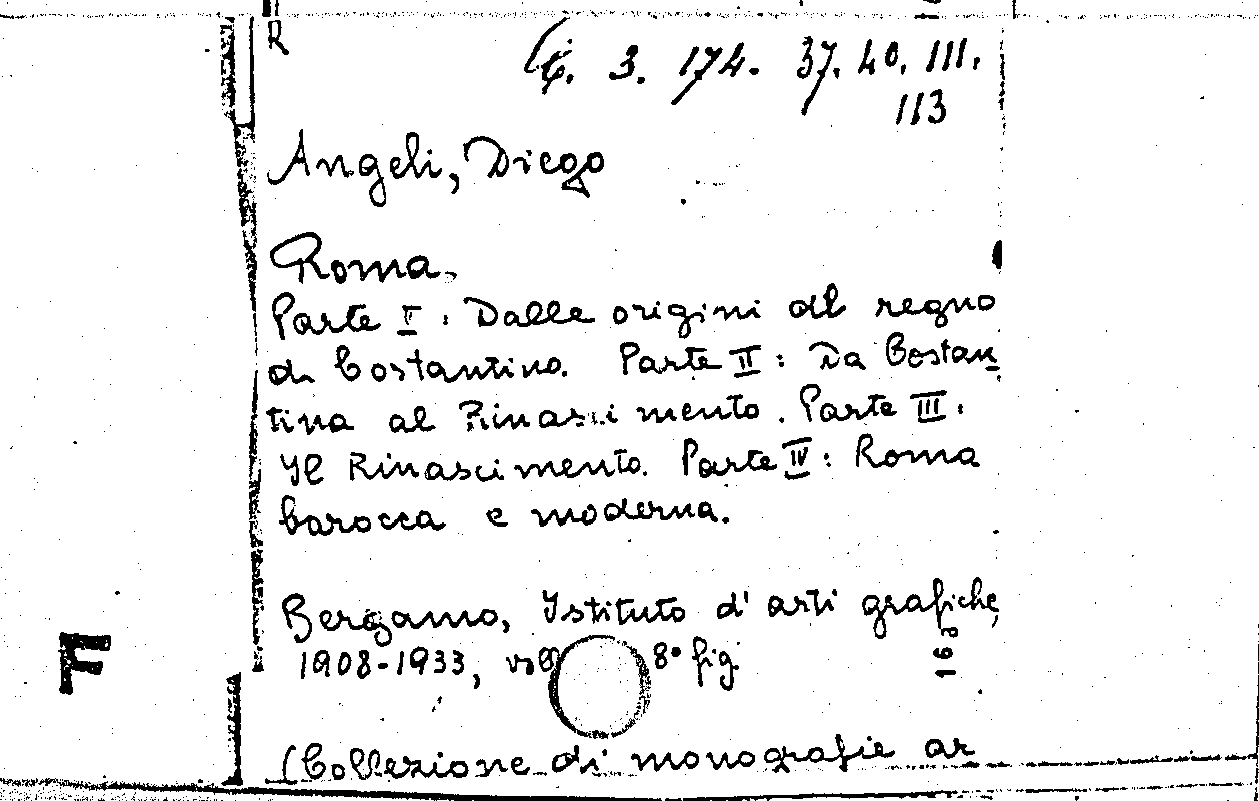 R
6. 3. 174. 37. 40. 111.
113
Angeli, Diego
Roma.
Parte I. Dalle origini al regno
di Costantino. Parte II: Da Costan-
tino al Rinascimento. Parte III.
Il Rinascimento. Parte IV: Roma
barocca e moderna.
Bergamo, Istituto d'arti grafiche,
1908-1933, voll 8° fig.
163
F
(Collezione di monografie ar